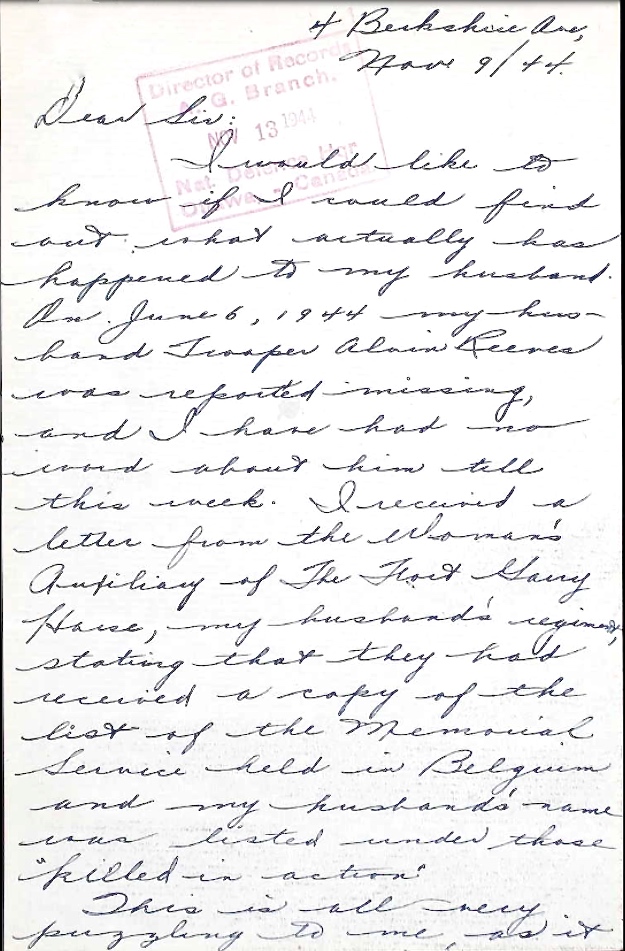 4 Berkshire Ave,
Nov 9/44.
Director of Records
A. G. Branch.
NOV 13 1944
Nat. Defence
Ottawa - Canada
Dear Sir:
I would like to
know if I could find
out what actually has
happened to my husband.
On June 6, 1944 my hus-
band Trooper Alvin Reeves
was reported missing,
and I have had no
word about him till
this week. I received a
letter from the Woman's
Auxiliary of The Fort Garry
Horse, my husband's regiment,
stating that they had
received a copy of the
list of the Memorial
Service held in Belgium
and my husband's name
was listed under those
"killed in action"
This is all very
puzzling to me, as it